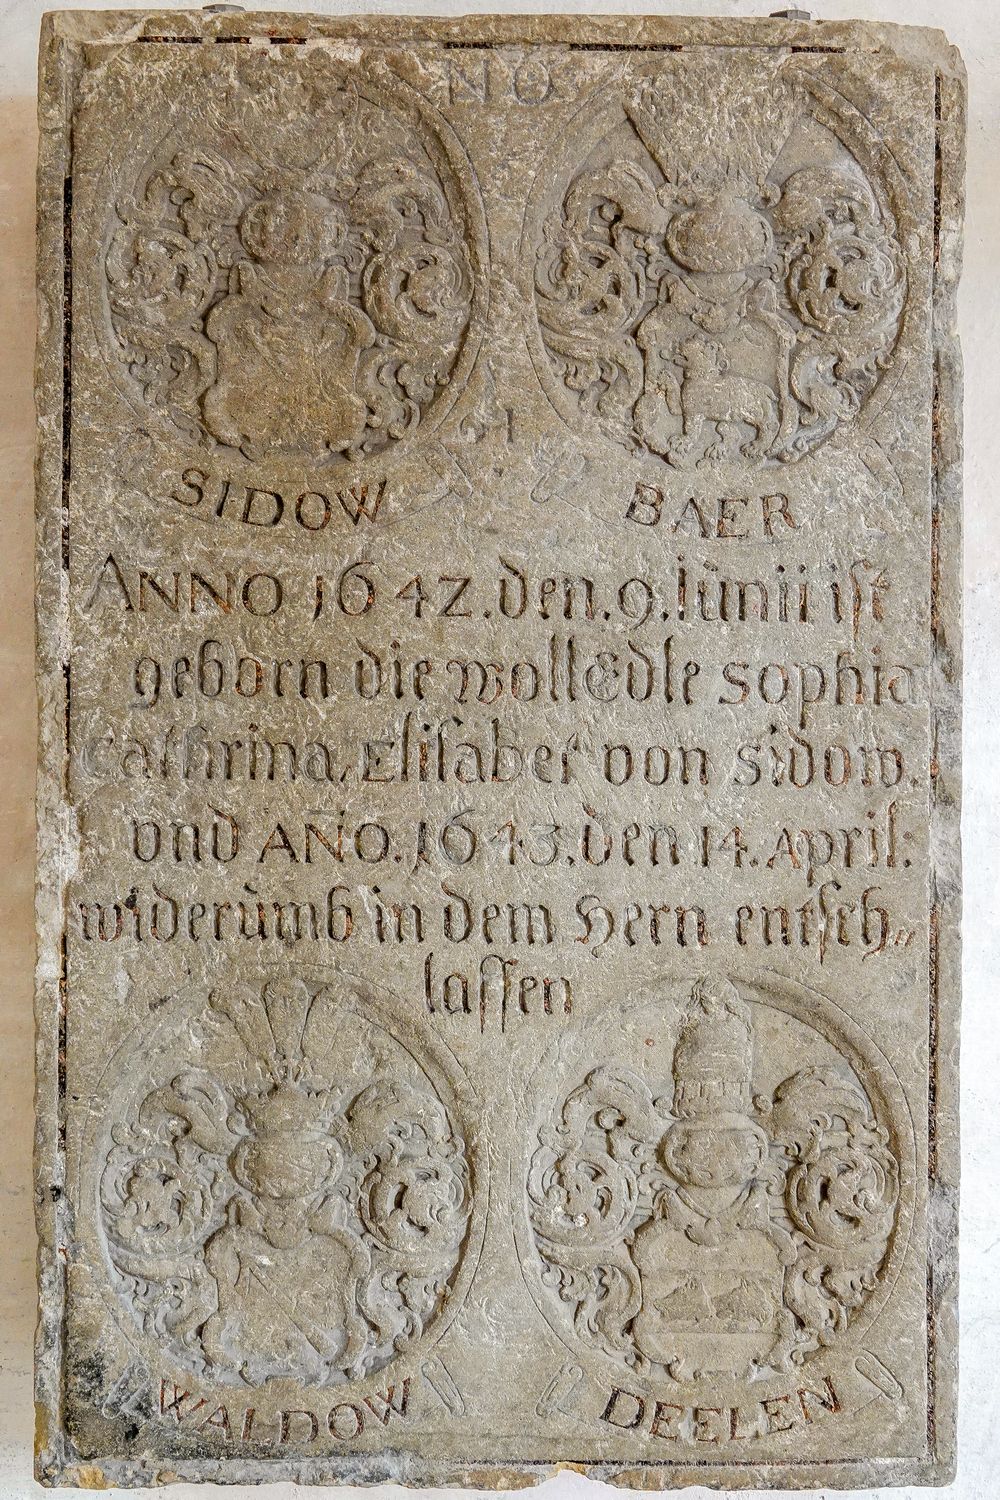 NO
SIDOW BAER
ANNO 1642. den. 9. Iŭnii ist
geborn die woll Edle SOphia
cathrina, Elisabet von Sidow.
vnd AÑO. 1643. den 14. April.
widerŭmb in dem Hern entsch„
lassen
WALDOW DEELEN